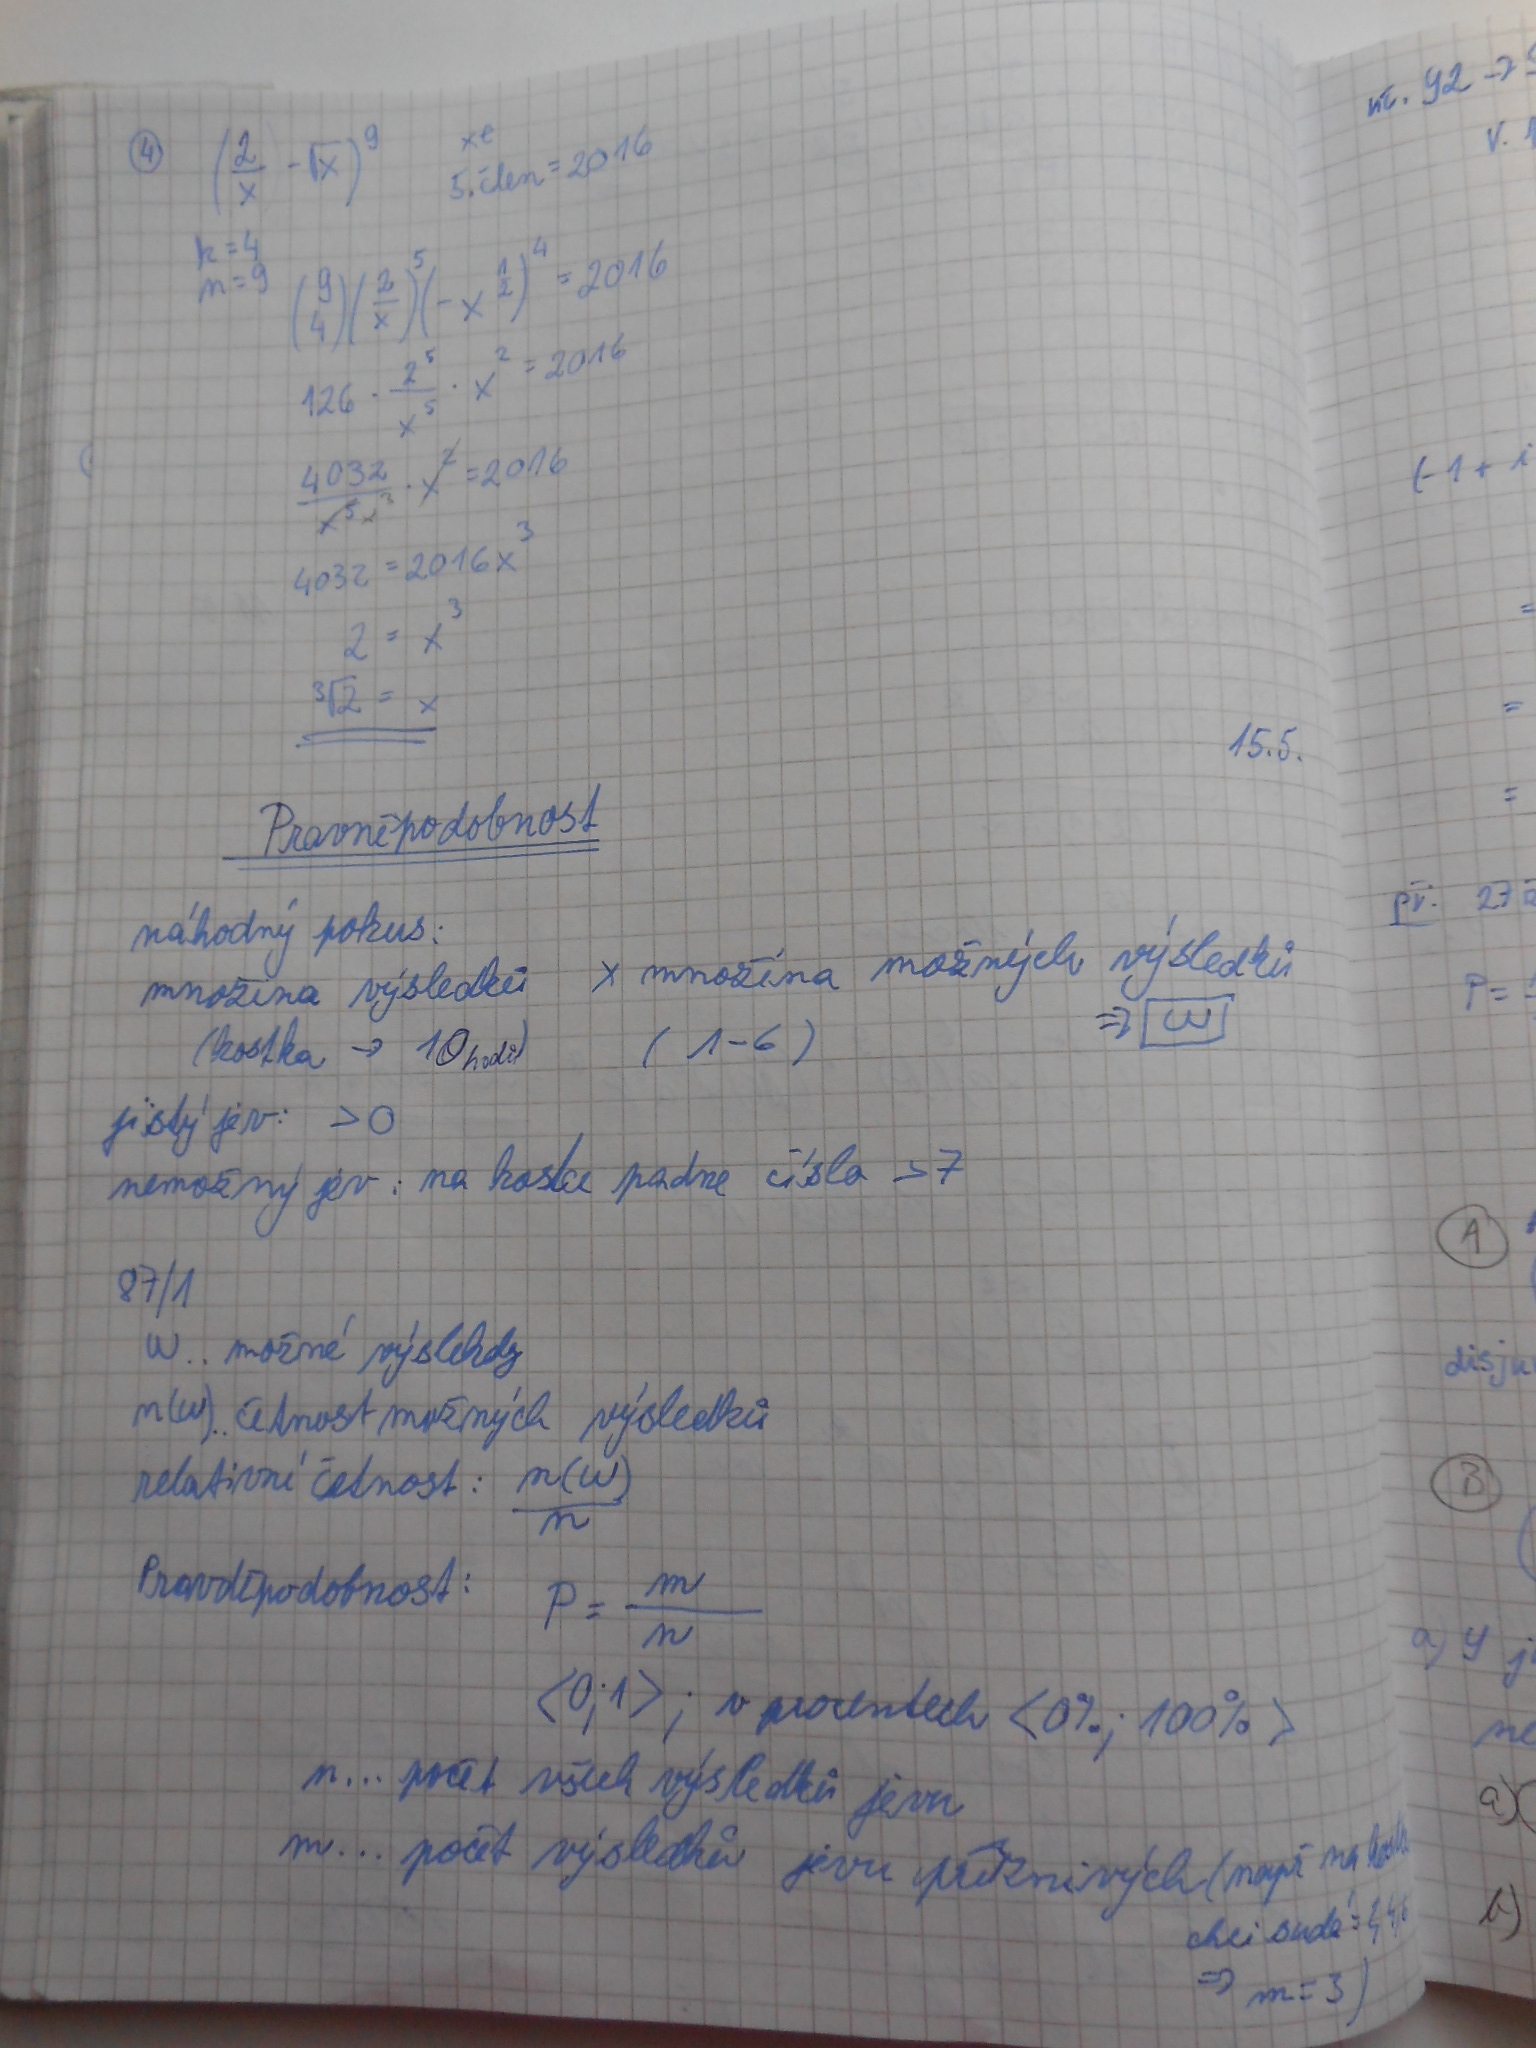 ④ (2/x - √x)⁹ x∈
5. člen = 2016
k = 4
n = 9
(9 4)(2/x)⁵(-x^½)⁴ = 2016
126 · 2⁵/x⁵ · x² = 2016
4032/x⁵x³ · x² = 2016
4032 = 2016x³
2 = x³
³√2 = x
15.5.
Pravděpodobnost
náhodný pokus:
množina výsledků x množina možných výsledků
(kostka → 10 hodů) (1-6) ⇒ ω
jistý jev: > 0
nemožný jev: na kostce padne číslo > 7
87/1
ω.. možné výslekdy
n(ω).. četnost možných výsledků
relativní četnost: n(ω)/n
Pravděpodobnost: P = m/n
<0;1>; v procentech <0%; 100%>
n... počet všech výsledků jevu
m... počet výsledků jevu příznivých (např na kostce
chci sudá = 2,4,6
⇒ m = 3)
92 →
(-1 + i
=
=
=
př. 27
P =
A
disju
B
a) y
a)
b)